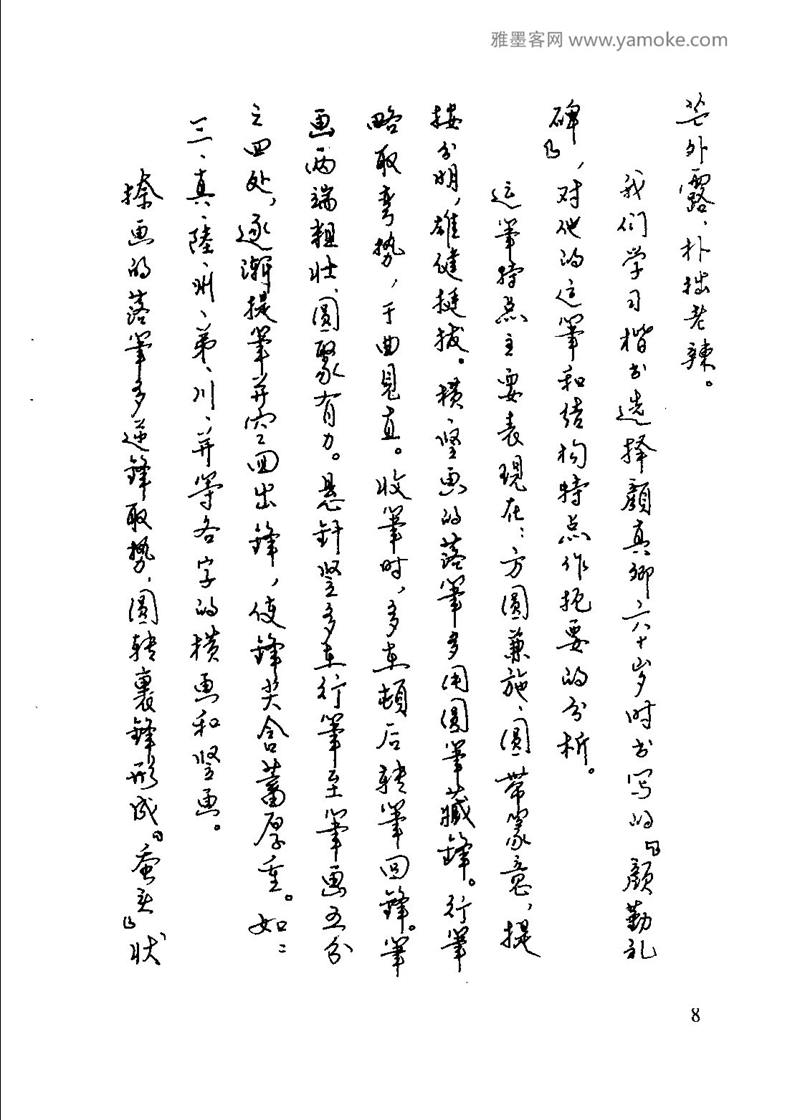 雅墨客网 www.yamoke.com
芒外露、朴拙老辣。
我们学习楷书选择颜真卿六十岁时书写的『颜勤礼
碑』，对他的运笔和结构特点作扼要的分析。
运笔特点主要表现在：方圆兼施、圆带篆意，提
按分明，雄健挺拔。横、竖画的落笔多用圆笔藏锋。行笔
略取弯势，于曲见直。收笔时，多在顿后转笔回锋。笔
画两端粗壮、圆聚有力。悬针竖多在行笔至笔画五分
之四处，逐渐提笔并空回出锋，使锋尖含蓄厚重。如：
三、真、陸、州、弟、川、并等各字的横画和竖画。
捺画的落笔多逆锋取势，圆转裹锋形成『蚕头』状，
8